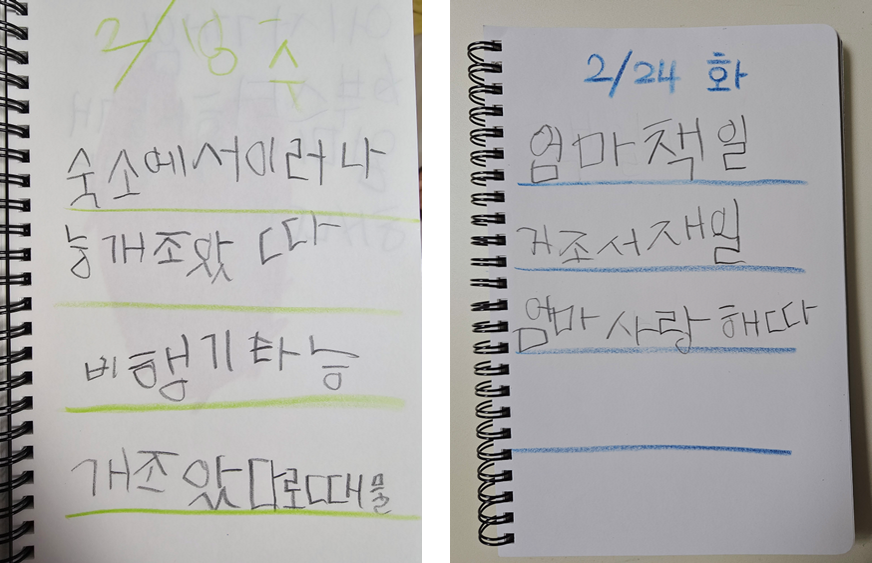 2/18 수
숙소에서이러나
능개조았 따
비행기타능
개조 았다로때물
2/24 화
엄마책일
거조서재일
엄마사랑해따